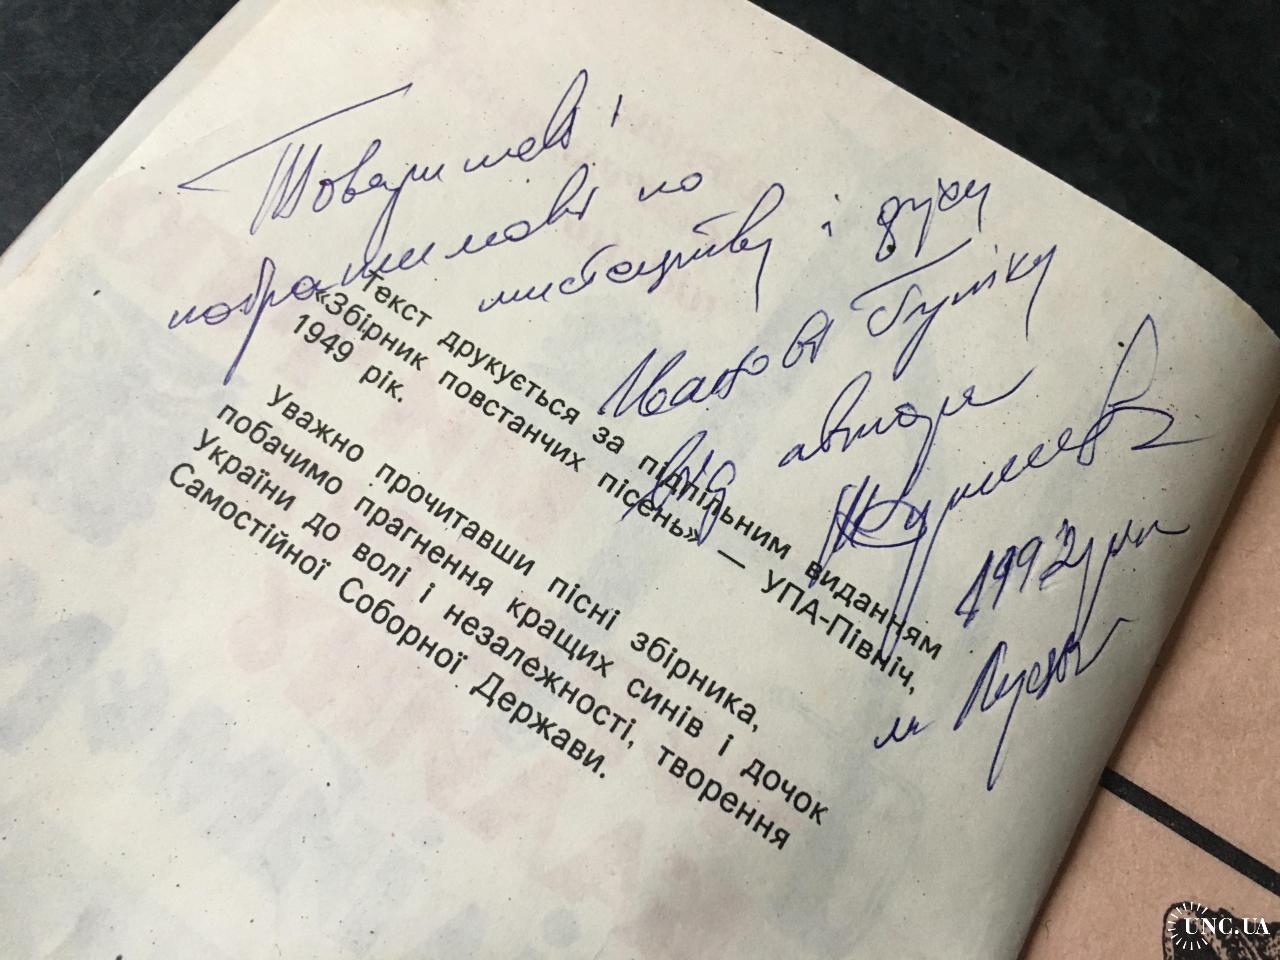 Товаришеві і
побратимові по
мистецтву і духу
Іванові
від автора
1992 рік
м
Текст друкується за підпільним виданням
«Збірник повстанчих пісень» — УПА-Північ,
1949 рік.
Уважно прочитавши пісні збірника,
побачимо прагнення кращих синів і дочок
України до волі і незалежності, творення
Самостійної Соборної Держави.
UNC.UA